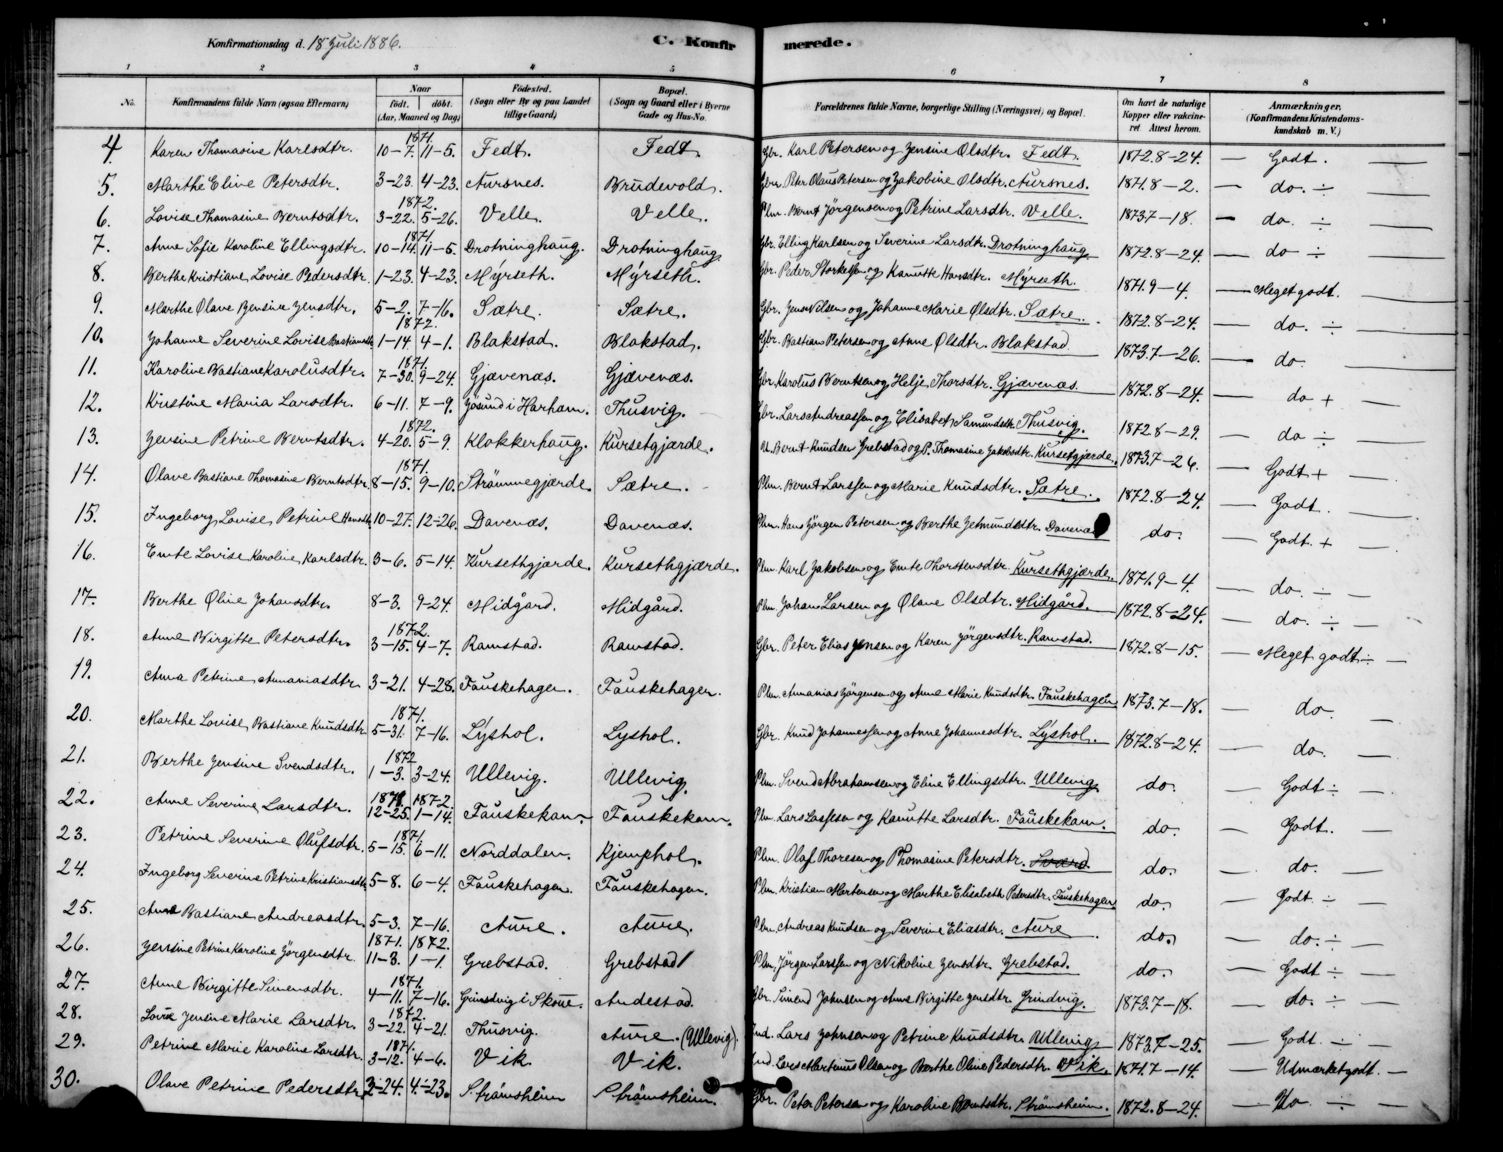 Konfirmationsdag d. 18 Juli 1886.
C. Konfirmerede.
1 2 3 4 5 6 7 8
No. Konfirmandens fulde Navn (ogsaa Efternavn) Naar født. døbt. (Aar, Maaned og Dag) Fødested. (Sogn eller By og paa Landet tillige Gaard) Bopæl. (Sogn og Gaard eller i Byerne Gade og Hus-No. Forældrenes fulde Navne, borgerlige Stilling (Næringsvei) og Bopæl. Om havt de naturlige Kopper eller vakcineret Attest herom. Anmærkninger. (Konfirmandens Kristendomskundskab m. V.)
4. Karen Thomasine Karlsdtr. 1871. 10-7. 11-5. Fedt. Fedt. Gbr. Karl Petersen og Jensine Olsdtr. Fedt. 1872.8-24. — Godt. —
5. Marthe Eline Petersdtr. 3-23. 4-23. Aursnes. Brudevold. Gbr. Peter Olaus Petersen og Jakobine Olsdtr. Aursnes. 1871.8-2. — do. ÷
6. Lovise Thomasine Berntsdtr. 1872. 3-22. 5-26. Velle. Velle. Plm. Bernt Jørgensen og Petrine Larsdtr. Velle. 1873.7-18. — do. ÷
7. Anne Sofie Karoline Ellingsdtr. 1871. 10-14. 11-5. Drotninghaug. Drotninghaug. Gbr. Elling Karlsen og Severine Larsdtr. Drotninghaug. 1872.8-24. — do ÷
8. Berthe Kristiane Lovise Pedersdtr. 1-23. 4-23. Myrseth. Myrseth. Gbr. Peder Storkelsen og Kanutte Hansdtr. Myrseth. 1871.9-4. — Meget godt. —
9. Marthe Olave Bensine Jensdtr. 5-2. 7-16. Sætre. Sætre. Gbr. Jens Nilsen og Johanne Marie Olsdtr. Sætre. 1872.8-24. — do. ÷
10. Johanne Severine Lovise Bastiansdtr. 1872. 1-14. 4-1. Blakstad. Blakstad. Gbr. Bastian Petersen og Anne Olsdtr. Blakstad. 1873.7-26. — do. —
11. Karoline Bastiane Karolusdtr. 1871. 7-30. 9-24. Gjævenæs. Gjævenæs. Gbr. Karolus Berntsen og Helje Thorsdtr. Gjævenæs. 1872.8-24. — do + —
12. Kristine Maria Larsdtr. 6-11. 7-9. Jøsund i Harham. Thusvig. Gbr. Lars Andreassen og Elisabet Samundsdtr. Thusvig. 1872.8-29. — do ÷
13. Jensine Petrine Berntsdtr. 1872. 4-20. 5-9. Klokkerhaug. Kursetgjærde. U. Bernt Knudsen Grebstad og P. Thomasine Jakobsdtr. Kursetgjærde. 1873.7-26. — Godt + —
14. Olave Bastiane Thomasine Berntsdtr. 1871. 8-15. 9-10. Strømmegjærde. Sætre. Plm. Bernt Larssen og Marie Knudsdtr. Sætre. 1872.8-24. — Godt. —
15. Ingeborg Lovise Petrine Hansdtr. 10-27. 12-26. Davenæs. Davenæs. Plm. Hans Jørgen Petersen og Berthe Jetmundsdtr. Davenæs do. — Godt. + —
16. Emte Lovise Karoline Karlsdtr. 3-6. 5-14. Kursethgjærde. Kursethgjærde. Plm. Karl Jakobsen og Emte Thorstensdtr. Kursethgjærde. 1871.9-4. — do. ÷ —
17. Berthe Oline Johansdtr. 8-3. 9-24. Midgård. Midgård. Plm. Johan Larsen og Olave Olsdtr. Midgård. 1872.8-24. — do. ÷ —
18. Anne Birgitte Petersdtr. 1872. 3-15. 4-7. Ramstad. Ramstad. Gbr. Peter Elias Jensen og Karen Jørgensdtr. Ramstad. 1872.8-15. — Meget godt ÷ —
19. Anna Petrine Annaniasdtr. 3-21. 4-28. Fauskehagen. Fauskehagen. Plm. Annanias Jørgensen og Anne Marie Knudsdtr. Fauskehagen 1873.7-18. — do. —
20. Marthe Lovise Bastiane Knudsdtr. 1871. 5-31. 7-16. Lyshol. Lyshol. Gbr. Knud Johannessen og Anne Johannesdtr. Lyshol. 1872.8-24. — do. —
21. Berthe Jensine Svendsdtr. 1872 1-3. 3-24. Ullevig. Ullevig. Plm. Svend Abrahamsen og Eline Ellingsdtr. Ullevig do. — Godt ÷ —
22. Anne Severine Larsdtr. 1871 1872. 12-25. 1-14. Fauskekam. Fauskekam. Plm. Lars Lassesen og Kanutte Larsdtr. Fauskekam. do. — Godt. —
23. Petrine Severine Olufsdtr. 1871. 5-15. 6-11. Norddalen. Kjemphol. Plm. Olaf Thoresen og Thomasine Petersdtr. do. — do. —
24. Ingeborg Severine Petrine Kristiansdtr. 5-8. 6-4. Fauskehagen. Fauskehagen. Plm. Kristian Mortensen og Marthe Elisabeth Pedersdtr. Fauskehagen do. — Godt. ÷ —
25. Ane Bastiane Andreasdtr. 5-3. 7-16. Aure. Aure. Plm. Andreas Knudsen og Severine Eliasdtr. Aure do. — do. ÷ —
26. Jensine Petrine Karoline Jørgensdtr. 1871. 1872. 11-3. 1-1. Grebstad. Grebstad Plm. Jørgen Larssen og Nikoline Jensdtr. Grebstad. do. — Godt ÷ —
27. Anne Birgitte Simensdtr. 1871. 4-11. 7-16. Grindvig i Skoue. Andestad. Gbr. Simend Johnsen og Ane Birgitte Jensdtr. Grindvig. 1873.7-18. — do. ÷ —
28. Lovise Jensine Marie Larsdtr. 1872. 3-22. 4-21. Thusvig. Aure. (Ullevig). Ind. Lars Johnsen og Petrine Knudsdtr. Ullevig 1873.7-25. — Godt ÷ —
29. Petrine Marie Karoline Larsdtr. 1871. 3-12. 4-6. Vik. Vik. Ind. Lars Martinus Olsen og Berthe Oline Pedersdtr. Vik. 1871.7-14. — Udmærket godt. —
30. Olave Petrine Pedersdtr. 2-24. 4-23. Strømsheim Strømsheim. Gbr. Peter Petersen og Karoline Berntsdtr. Strømsheim. 1872.8-24. — do ÷ —